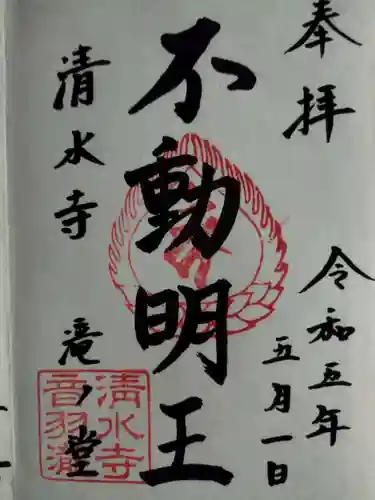 奉拝
令和五年
五月一日
不動明王
清水寺
滝ノ堂
清水寺
音羽瀧